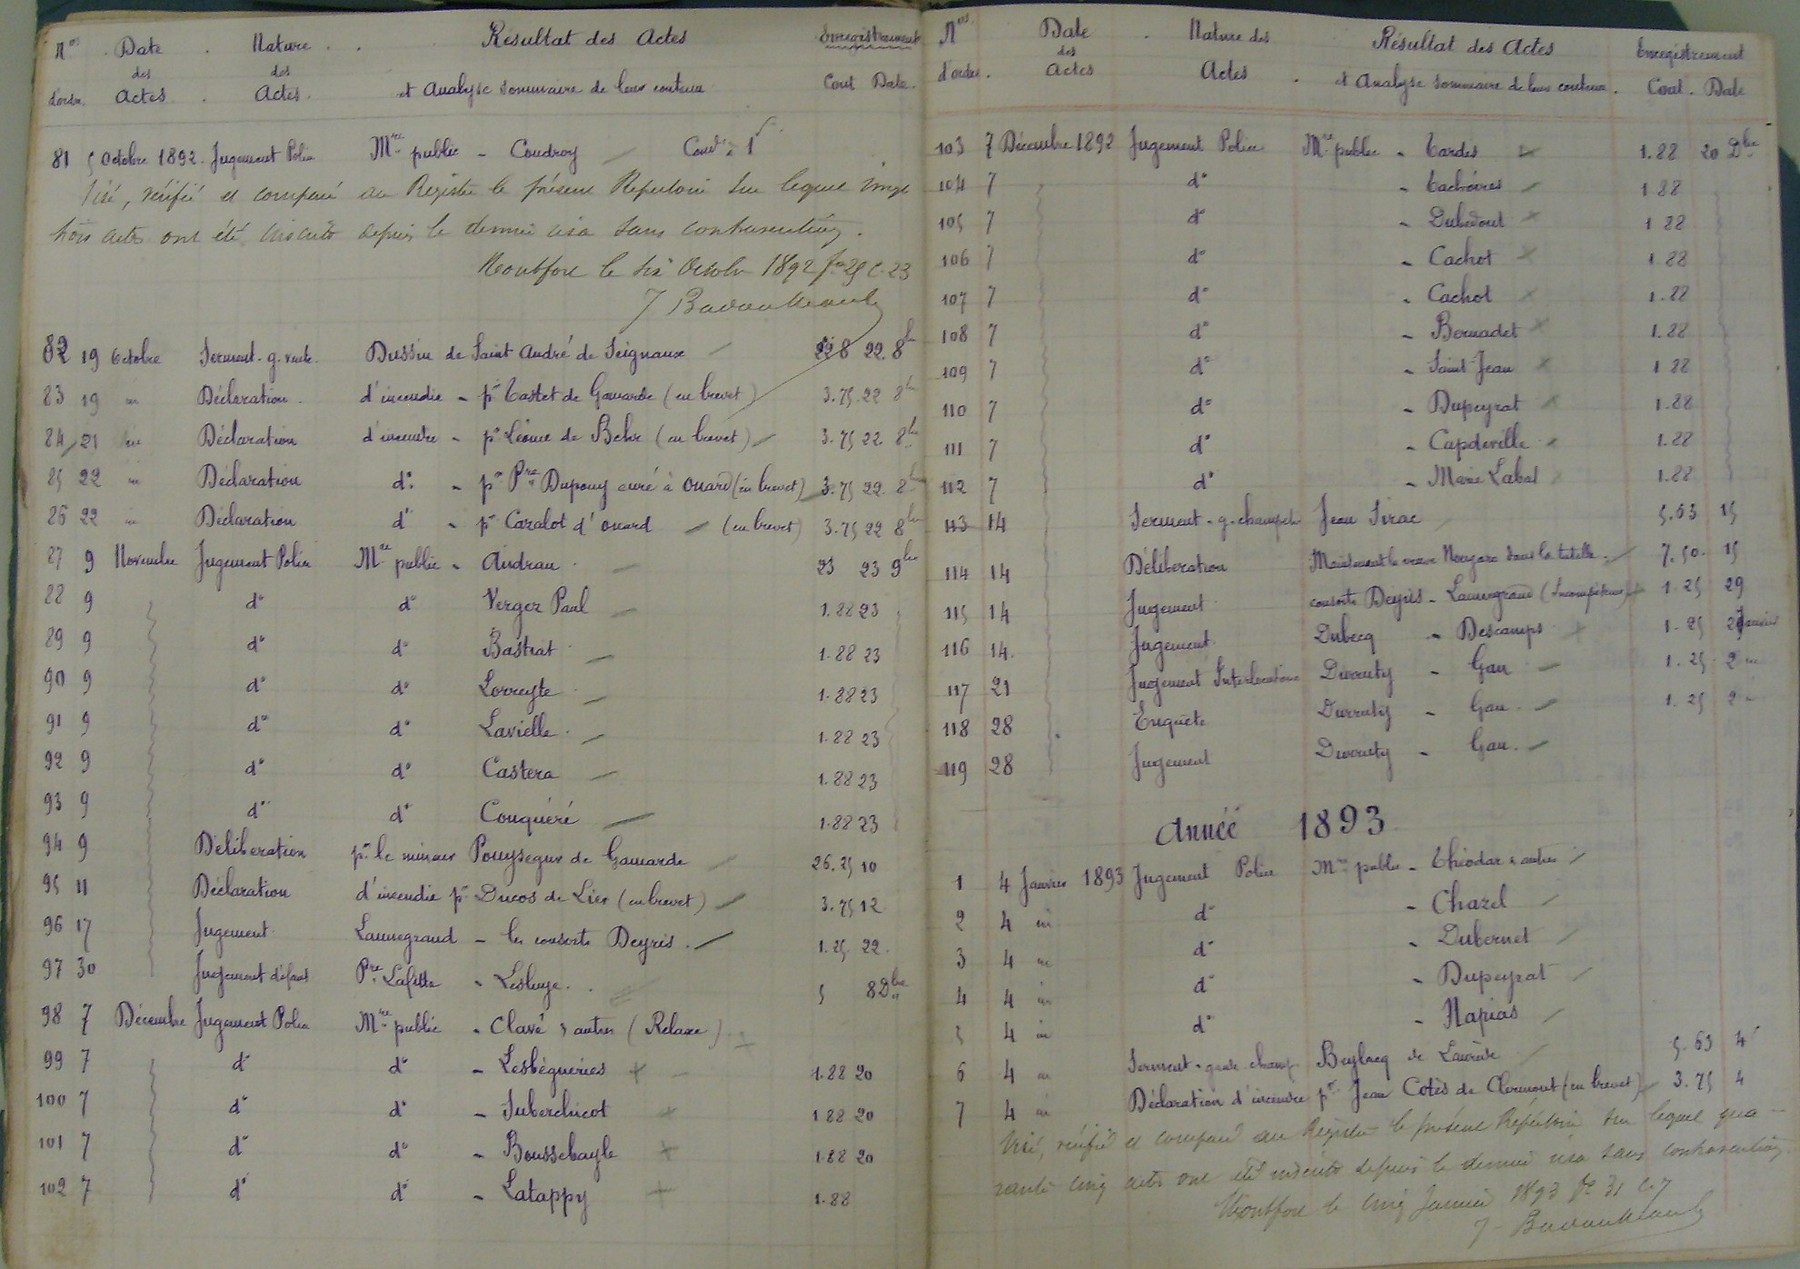 Nos Date Nature Résultat des Actes Enregistrement
des des
d'ordre Actes Actes et Analyse sommaire de leur contenu Cout Date
81 5 Octobre 1892 Jugement Police Mre public - Coudroy Cond. à 1f
Visé, vérifié et comparé au Registre le présent Répertoire sur lequel vingt
trois actes ont été inscrits depuis le dernier visa sans contravention.
Montfort le six Octobre 1892 fo 29 c. 23
82 19 Octobre Serment g. vente Dussin de Saint André de Seignanx 22 8
83 19 Déclaration d'incendie - pr Castet de Gamarde (en brevet) 3.75 22 8bre
84 21 Déclaration d'incendie - pr Léonce de Behr (en brevet) 3.75 22 8bre
85 22 Déclaration do - pr Pre Dupouy curé à Onard (en brevet) 3.75 22 8bre
86 22 Déclaration do - pr Cazalot d'onard (en brevet) 3.75 22 8bre
87 9 Novembre Jugement Police Mre public - Andrau 23 23 9bre
88 9 do do Verger Paul 1.88 23
89 9 do do Bastiat 1.88 23
90 9 do do Lorreyte 1.88 23
91 9 do do Lavielle 1.88 23
92 9 do do Castera 1.88 23
93 9 do do Couquéré 1.88 23
94 9 Délibération pr le mineur Pouysegur de Gamarde 26.25 10
95 11 Déclaration d'incendie pr Ducos de Lier (en brevet) 3.75 12
96 17 Jugement Launegrand - les consorts Deyris 1.25 22
97 30 Jugement défaut Pre Lafitte - Lesluye 5 8 Dbre
98 7 Décembre Jugement Police Mre public - Clavé & autres (Relaxe)
99 7 do do - Lesbégueries 1.88 20
100 7 do do - Suberchicot 1.88 20
101 7 do do - Boussebayle 1.88 20
102 7 do do - Latappy 1.88
Nos Date Nature des Résultat des Actes Enregistrement
des
d'ordre Actes Actes et Analyse sommaire de leur contenu Cout Date
103 7 Décembre 1892 Jugement Police Mre public - Tardis 1.88 20 Dbre
104 7 do - Cachóires 1 88
105 7 do - Dubedout 1 88
106 7 do - Cachot 1.88
107 7 do - Cachot 1.88
108 7 do - Bernadet 1.88
109 7 do - Saint-Jean 1 88
110 7 do - Dupeyrat 1.88
111 7 do - Capdeville 1.88
112 7 do - Marie Labat 1.88
113 14 Serment g. champêtre Jean Sirac 5.63 15
114 14 Délibération Maintenant la veuve Nougaro dans la tutelle 7.50 15
115 14 Jugement consorts Deyris - Launegrand (Incompétence) 1.25 29
116 14 Jugement Dubecq - Descamps 1.25 2 Janvier
117 21 Jugement Interlocutoire Durruty - Gau 1.25 2
118 28 Enquête Durruty - Gau 1.25 2
119 28 Jugement Durruty - Gau
Année 1893
1 4 Janvier 1893 Jugement Police Mre public - Thiodar & autres
2 4 do - Chazel
3 4 do - Dubernet
4 4 do - Dupeyrat
5 4 do - Napias
6 4 Serment garde champ. Beylacq de Laurède 5.63 4
7 4 Déclaration d'incendie pr Jean Cotès de Clermont (en brevet) 3.75 4
Visé, vérifié et comparé au Registre le présent Répertoire sur lequel qua-
rante cinq actes ont été inscrits depuis le dernier visa sans contravention.
Montfort le cinq Janvier 1893 fo 31 c. 7